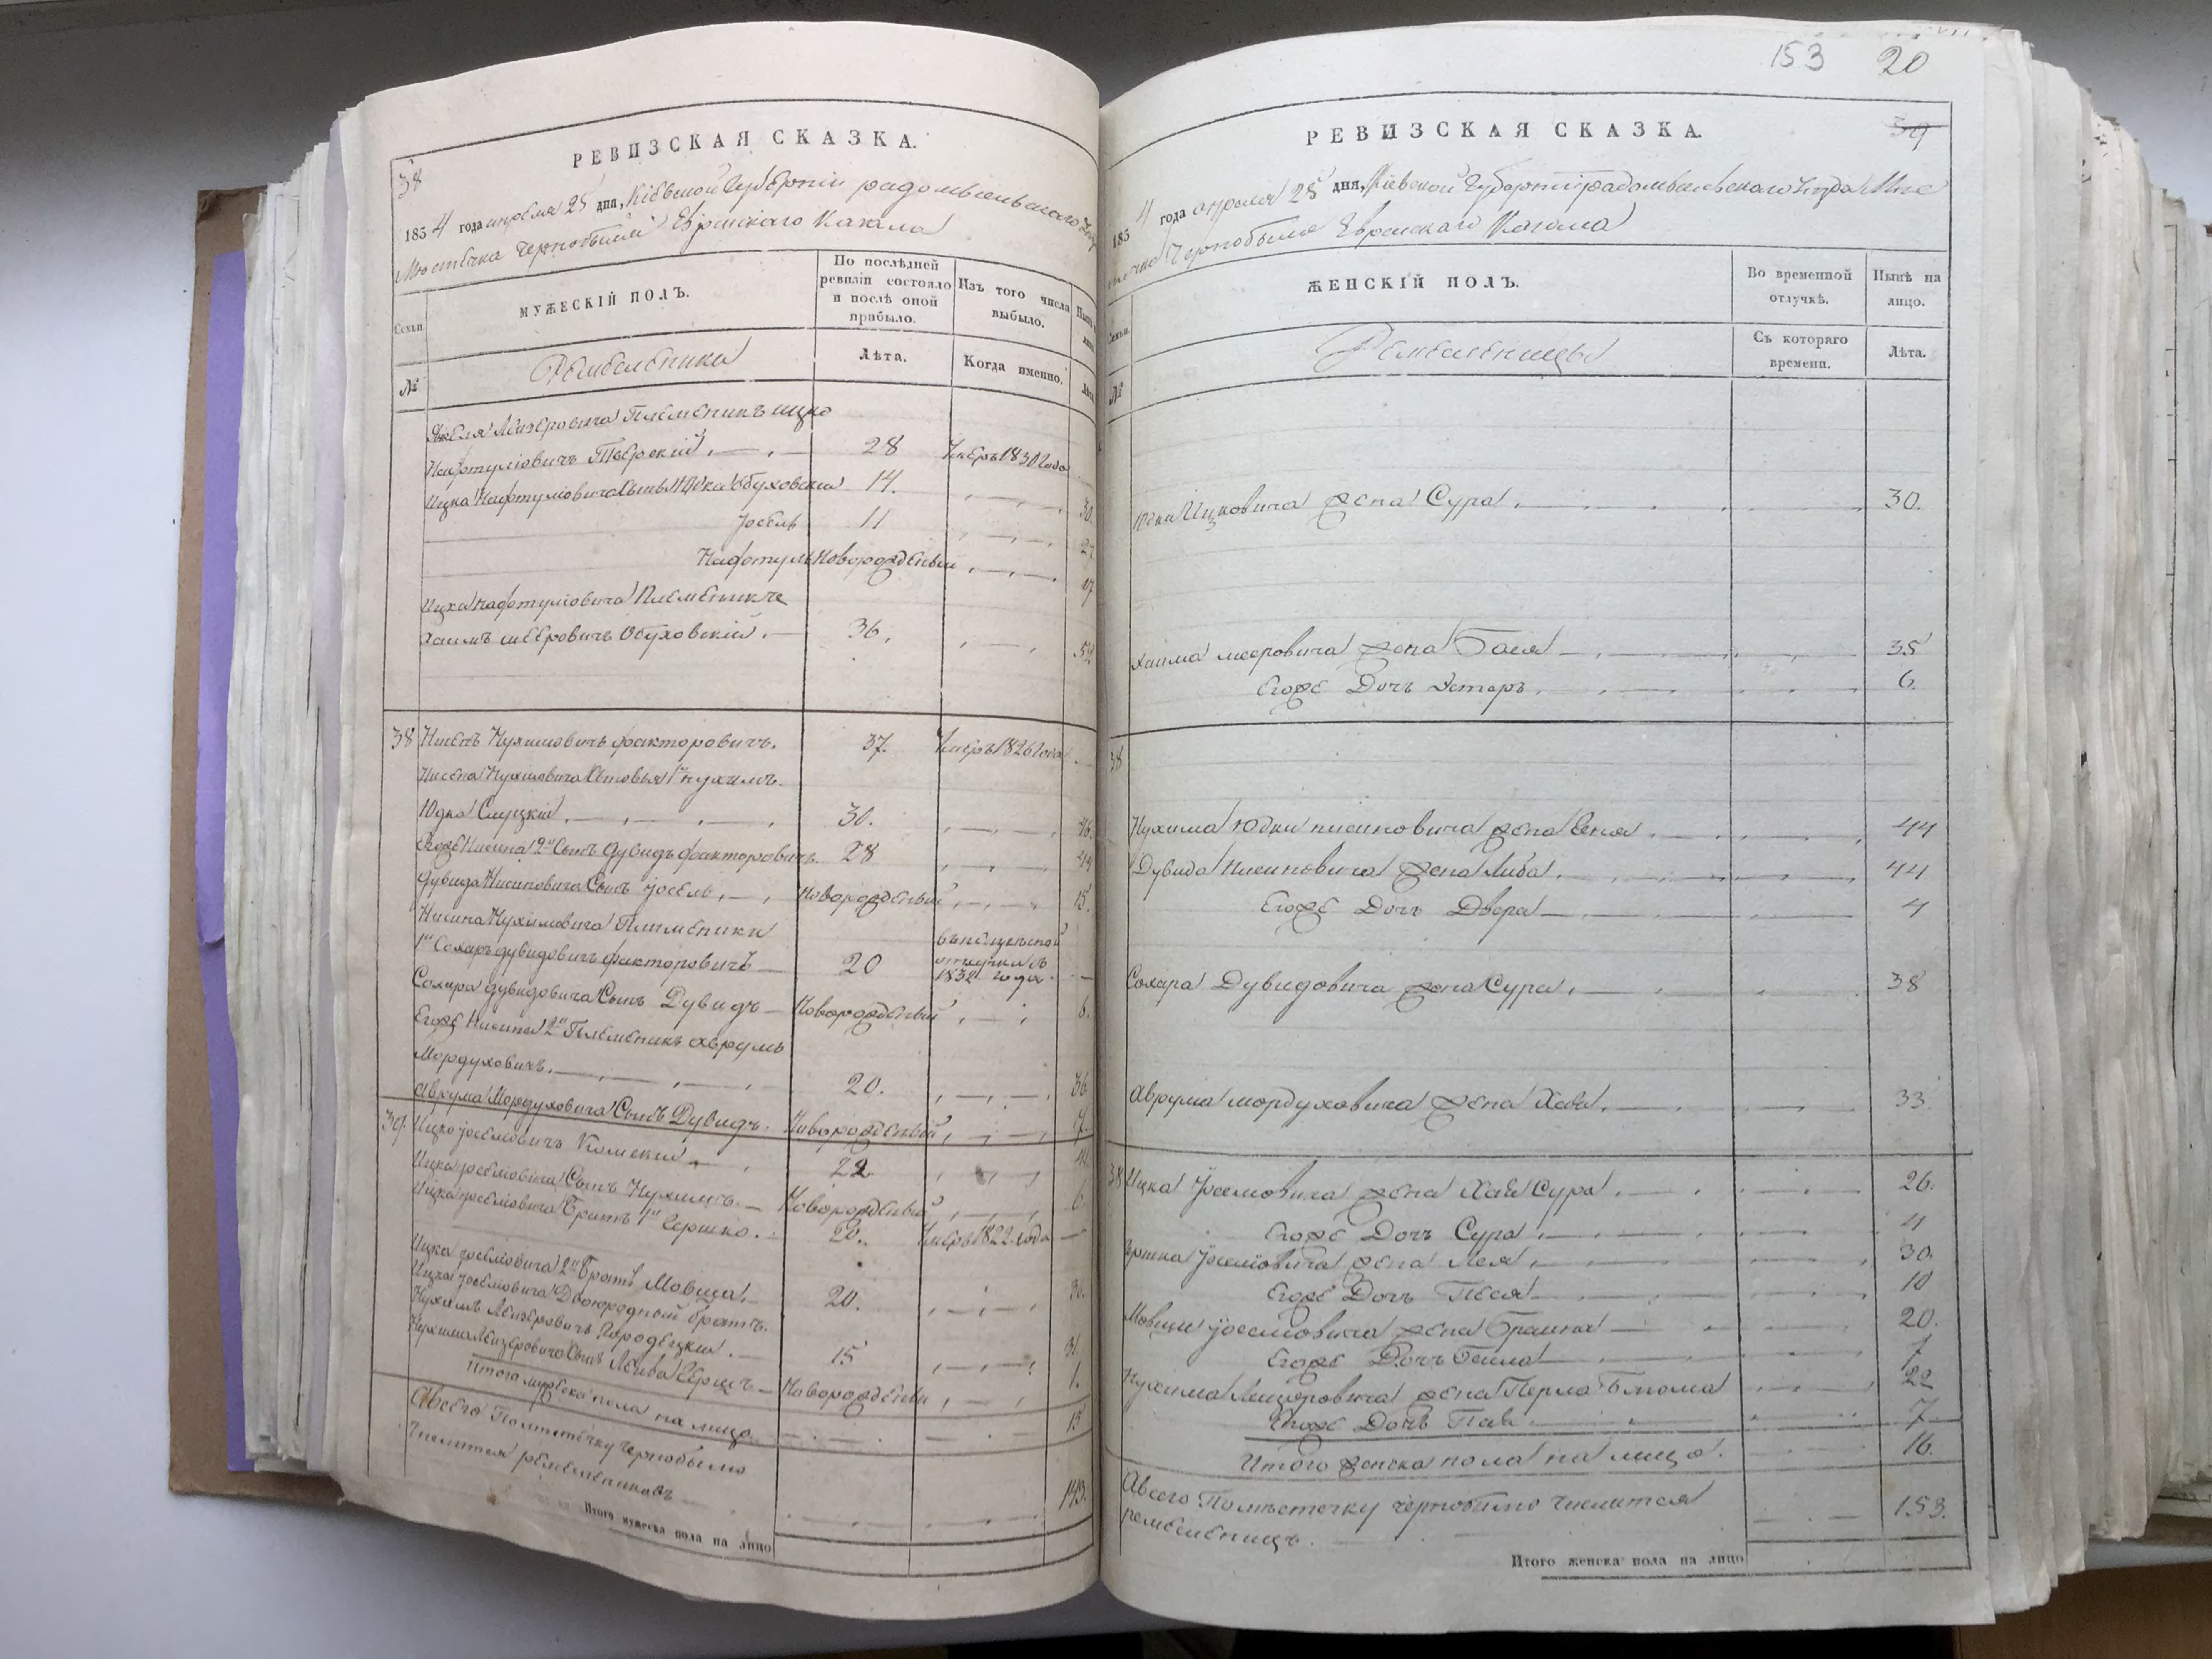 РЕВИЗСКАЯ СКАЗКА.
38
1854 года апреля 25 дня, Кіевской Губерніи радомысльского
Местечка Чернобыля Еврейскаго Кагала
Семьи.
МУЖЕСКІЙ ПОЛЪ.
По послѣдней ревизіи состояло и послѣ оной прибыло.
Изъ того числа выбыло.
№
Ремесленики
Лѣта.
Когда именно.
Лейзеровича Племеникъ ицко
Нафтуліовичъ 28 Умеръ 1830 года
Ицка Нафтуліовича Сынъ Обуховский 14. 30.
Іосель 11 27
Нафтулъ Новорожденый 17
Ицка Нафтуліовича Племеникъ
Хаимъ Мееровичъ Обуховскій. 36. 52
38 Нисенъ Нухимовичъ факторовичъ. 37. Умеръ 1826 года
Нисена Нухимовича Сыновья 1й Нухимъ
Юдко Слуцкій 30. 46.
Егоже Нисина 2й Сынъ Дувидъ факторовичъ. 28 44
Дувида Нисиновича Сынъ Іосель Новорожденый 15.
Нисина Нухимовича Племеники
1й Сохаръ дувидовичъ факторовичъ 20
отлучки съ
1832 года.
Сохара дувидовича Сынъ Дувидъ Новорожденый 6.
Егоже Нисина 2й Племеникъ Аврумъ
Мордуховичъ. 20. 36
Аврума Мордуховича Сынъ Дувидъ. Новорожденый 7.
39. Ицко Іоселіовичъ 22
Ицка Іоселіовича Сынъ Нухимъ. Новорожденый 6.
Ицка Іоселіовича Братъ 1й Гершко. 20. Умеръ 1822 года
Ицка Іоселіовича 2й Братъ Мовша. 20. 30.
Ицка Іоселіовича Двоюродный братъ.
Нухимъ Лейзеровичъ Городецкій. 15 31.
Нухима Лейзеровича Сынъ Лейба Герцъ Новорожденый 1.
Итого мужеска пола на лицо 15
А всего По местечку Чернобылю
Числится ремеслениковъ 143.
Итого мужеска пола на лицо
153 20
39
РЕВИЗСКАЯ СКАЗКА.
1854 года апреля 25 дня, Кіевской Губерніи радомысльского Уезда Мес
течка Чернобыля Еврейскаго Кагала
Семьи.
ЖЕНСКІЙ ПОЛЪ.
Во временной отлучкѣ.
Нынѣ на лицо.
№
Ремесленицы
Съ котораго времени.
Лѣта.
Ицковича жена Сура. 30.
Хаима Мееровича жена Бася 35
Егоже Дочь Эстеръ. 6.
38
Нухима Юдки Нисиновича жена Сеня. 44
Дувида Нисиновича жена Либа. 44
Егоже Дочь Двера 4
Сохара Дувидовича жена Сура. 38
Аврума Мордуховича жена Хава. 33.
38 Ицка Іоселіовича жена Хая Сура. 26.
Егоже Дочь Сура 4
Гершка Іоселіовича жена Лея 30.
Егоже Дочь Песя 10
Мовши Іоселіовича жена Браина 20.
Егоже Дочь Бейла 7
Нухима Лейзеровича жена Перла Блюма 22
Егоже Дочь 7
Итого женска пола на лицо. 16.
А всего По местечку Чернобылю Числится
ремесленицъ. 153.
Итого женска пола на лицо